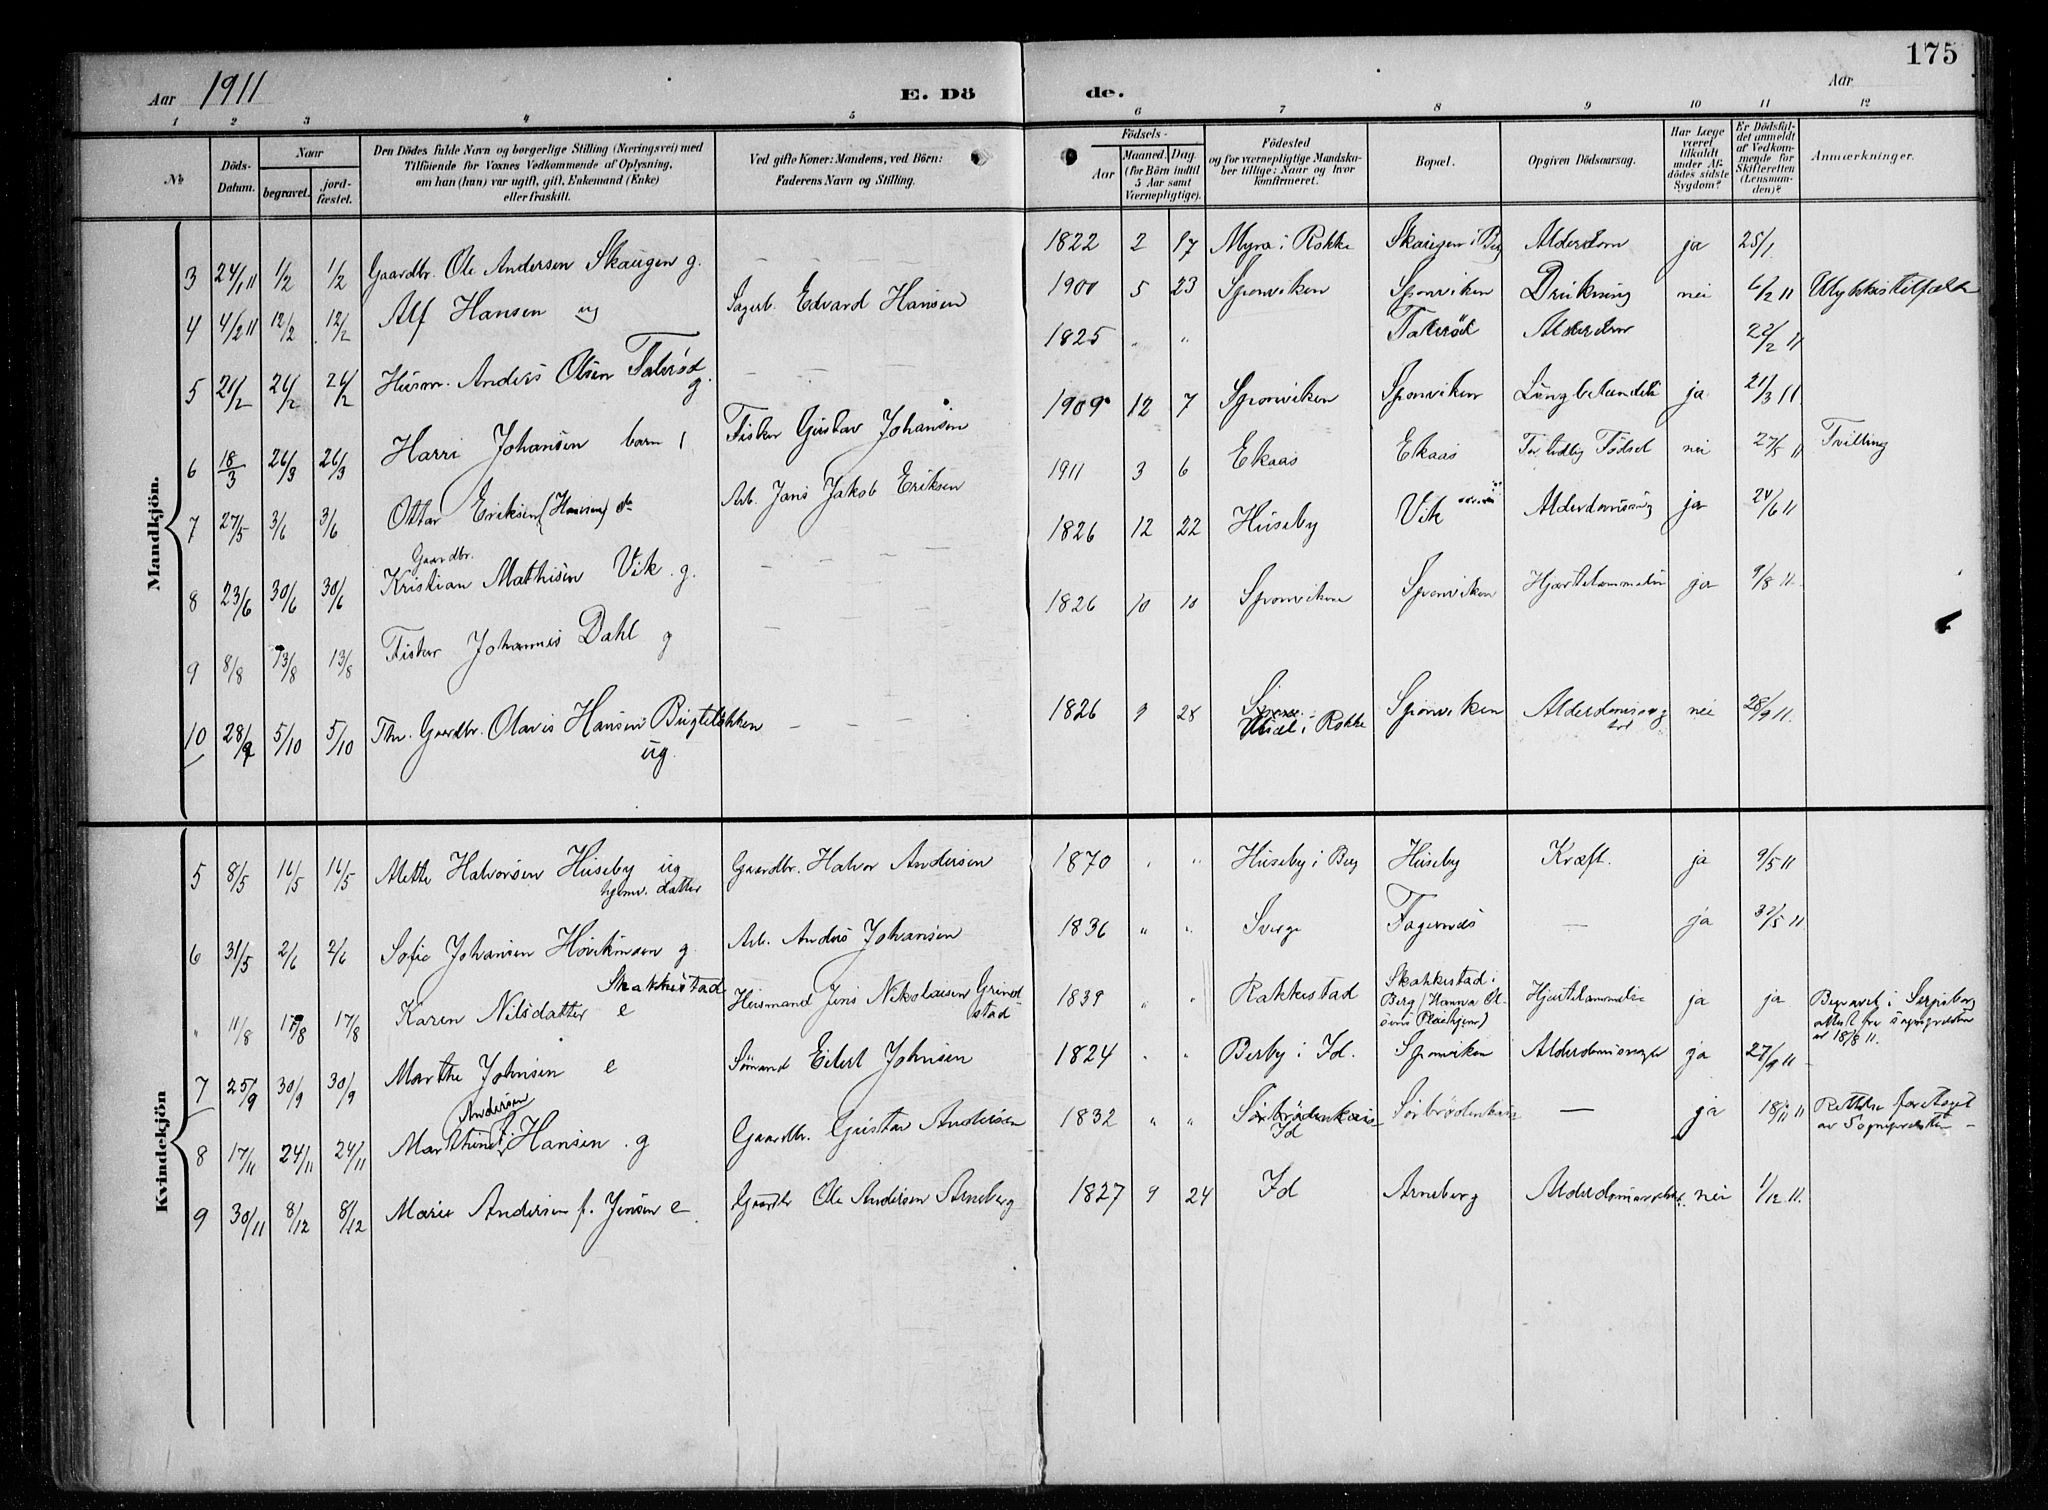 175
Aar 1911
E. Dö
de.
Aar
1 2 3 4 5 6 7 8 9 10 11 12
№
Döds-Datum.
Naar
begravet.
jord-fæstet.
Den Dödes fulde Navn og borgerlige Stilling (Næringsvei) med
Tilföiende för Voxnes Vedkommende af Oplysning,
om han (hun) var ugift, gift, Enkemand (Enke)
eller fraskilt.
Ved gifte Koner: Mandens, ved Börn:
Faderens Navn og Stilling.
Födsels-
Aar
Maaned. Dag.
(for Börn indtil
5 Aar samt
Værnepligtige).
Födested
og for værnepligtige Mandska-
ber tillige: Naar og hvor
konfirmeret.
Bopæl.
Opgiven Dödsaarsag.
Har Læge
været
tilkaldt
under Af-
dödes sidste
Sygdom?
Er Dödsfal-
det anmeldt
af Vedkom-
mende for
Skifteretten
(Lensman-
den)?
Anmærkninger.
Mandkjön.
3 24/1 11 1/2 1/2 Gaardbr. Ole Andersen Skaugen g. 1822 2 17 Myra i Rokke Skaugen i Berg Alderdom ja 25/1
4 4/2 11 12/2 12/2 Alf Hansen ug Sagerb. Edvard Hansen 1900 5 23 Sponviken Sponviken Drukning nei 6/2 11 Ulykkestilfælde
5 21/2 26/2 26/2 Husm. Anders Olsen g. 1825 " " Alderdom 22/2 11
6 18/3 26/3 26/3 Harri Johansen barn Fisker Gustav Johansen 1909 12 7 Sponviken Sponviken Lungbetændelse ja 21/3 11
7 27/5 3/6 3/6 Ottar Eriksen (Hansen) do Arb. Jens Jakob Eriksen 1911 3 6 Ekaas Ekaas For tidlig Födsel nei 27/5 11 Tvilling
8 23/6 30/6 30/6 Gaardbr. Kristian Mathisen Vik. g. 1826 12 22 Huseby Vik ja 24/6 11
9 8/8 13/8 13/8 Fisker Johannes Dahl g 1826 10 10 Sponviken Sponviken Hjertelammelse ja 9/8 11.
10 28/9 5/10 5/10 Fhv. Gaardbr. Olavis Hansen ug. 1826 9 28 i Rokke Sponviken nei 28/9 11.
Kvindekjön
5 8/5 16/5 16/5 Mette Halvorsen Huseby ug hjemv. datter Gaardbr. Halvor Andersen 1870 " " Huseby i Berg Huseby Kræft. ja 9/5 11
6 31/5 2/6 2/6 Sofie Johansen g Arb. Anders Johansen 1836 " " Sverge Fagernes — ja
" 11/8 17/8 17/8 Karen Nilsdatter Skakkestad e Husmand Jens Nikolaisen Grimdstad 1839 " " Rakkestad Skakkestad i
Berg (Hanna Ol-
sens Pleiehjem) Hjertelammelse ja ja Begravet i Sarpsborg
attest fra sognepræsten
av 18/8 11.
7 25/9 30/9 30/9 Marthe Johnsen e Sömand Eilert Johnsen 1824 " " Berby i Id. Sponviken ja 27/9 11
8 17/11 24/11 24/11 Andersen Hansen. g Gaardbr. Gustav Andersen 1832 " " Id — ja 18/11 11 Rettelse foretaget
av Sogneprästen
9 30/11 8/12 8/12 Marie Andersen f. Jensen e Gaardbr Ole Andersen Arneberg 1827 9 24 Id Arneberg nei 1/12 11.